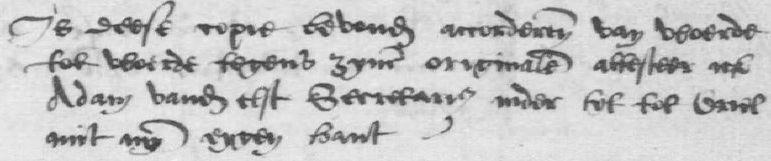 Is deese copie bevonden accorderen van woorde
tot woorde tegens zyn originale attesteer ick
Adam vanden Elst Secretaris inder tyt tot
mit myn eygen hant